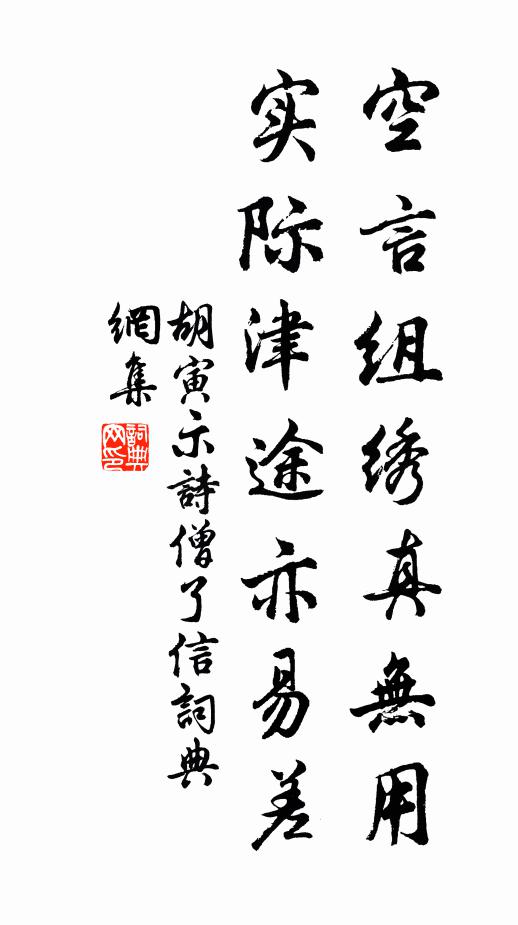 空言组绣真無用
实际津途亦易差
胡寅示詩僧了信詞典
網集
詞典网印